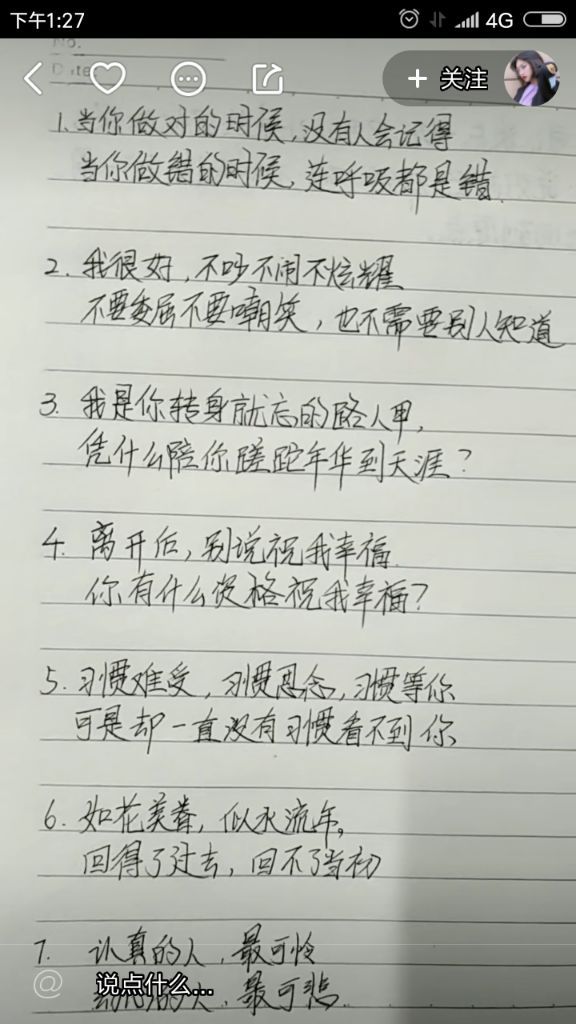 下午1:27
4G
No.
Date
+ 关注
1.当你做对的时候,没有人会记得
当你做错的时候,连呼吸都是错.
2.我很好,不吵不闹不炫耀
不要委屈不要嘲笑,也不需要别人知道
3.我是你转身就忘的路人甲,
凭什么陪你蹉跎年华到天涯?
4.离开后,别说祝我幸福.
你有什么资格祝我幸福?
5.习惯难受,习惯思念,习惯等你
可是却一直没有习惯看不到你
6.如花美眷,似水流年,
回得了过去,回不了当初
7. 认真的人,最可怜
的人,最可悲.
@ 说点什么...